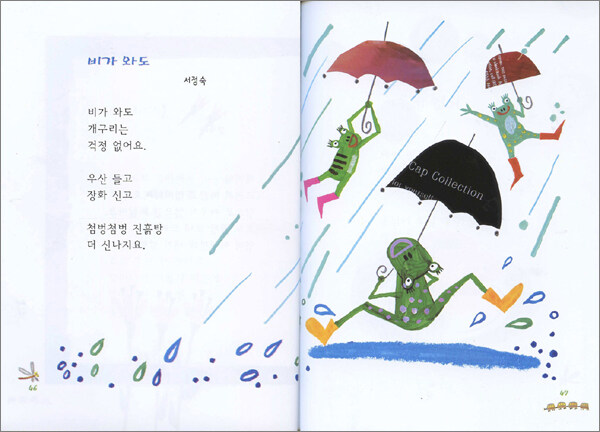 비가 와도
서정숙
비가 와도
개구리는
걱정 없어요.
우산 들고
장화 신고
첨벙첨벙 진흙탕
더 신나지요.
Cap Collection
46
47